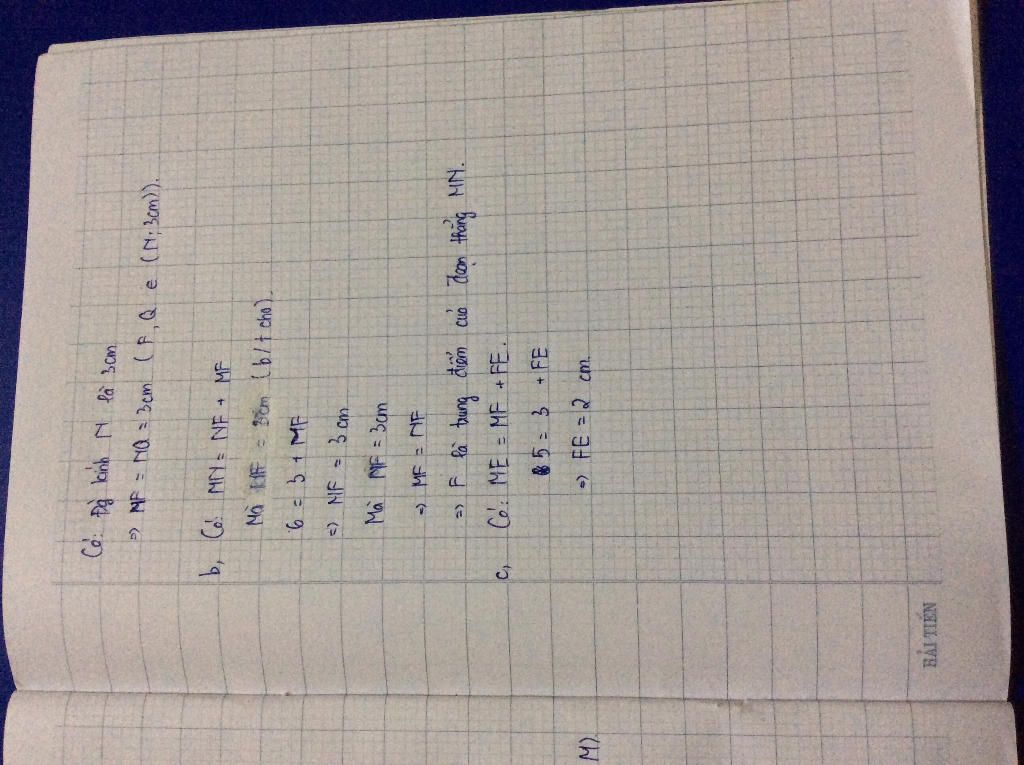 Có: Độ bánh N là 3cm
=> NF = NQ = 3cm (F, Q e (N; 3cm)).
b, Có: MN = NF + MF
Mà MF = 3cm (b/t cho).
6 = 3 + MF
=> MF = 3cm
Mà NF = 3cm
=> MF = NF
=> F là trung điểm của đoạn thẳng MN.
c, Có: ME = MF + FE.
5 = 3 + FE
=> FE = 2 cm.
HẢI TIẾN
M)